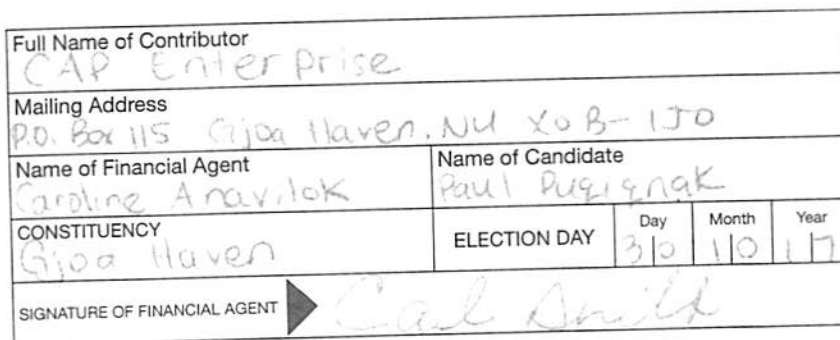 Full Name of Contributor
CAP Enterprise
Mailing Address
P.O. Box 115 Gjoa Haven, NU X0B-1J0
Name of Financial Agent
Caroline Anavilok
Name of Candidate
Paul Puqiqnak
CONSTITUENCY
Gjoa Haven
ELECTION DAY
Day Month Year
30 10 17
SIGNATURE OF FINANCIAL AGENT